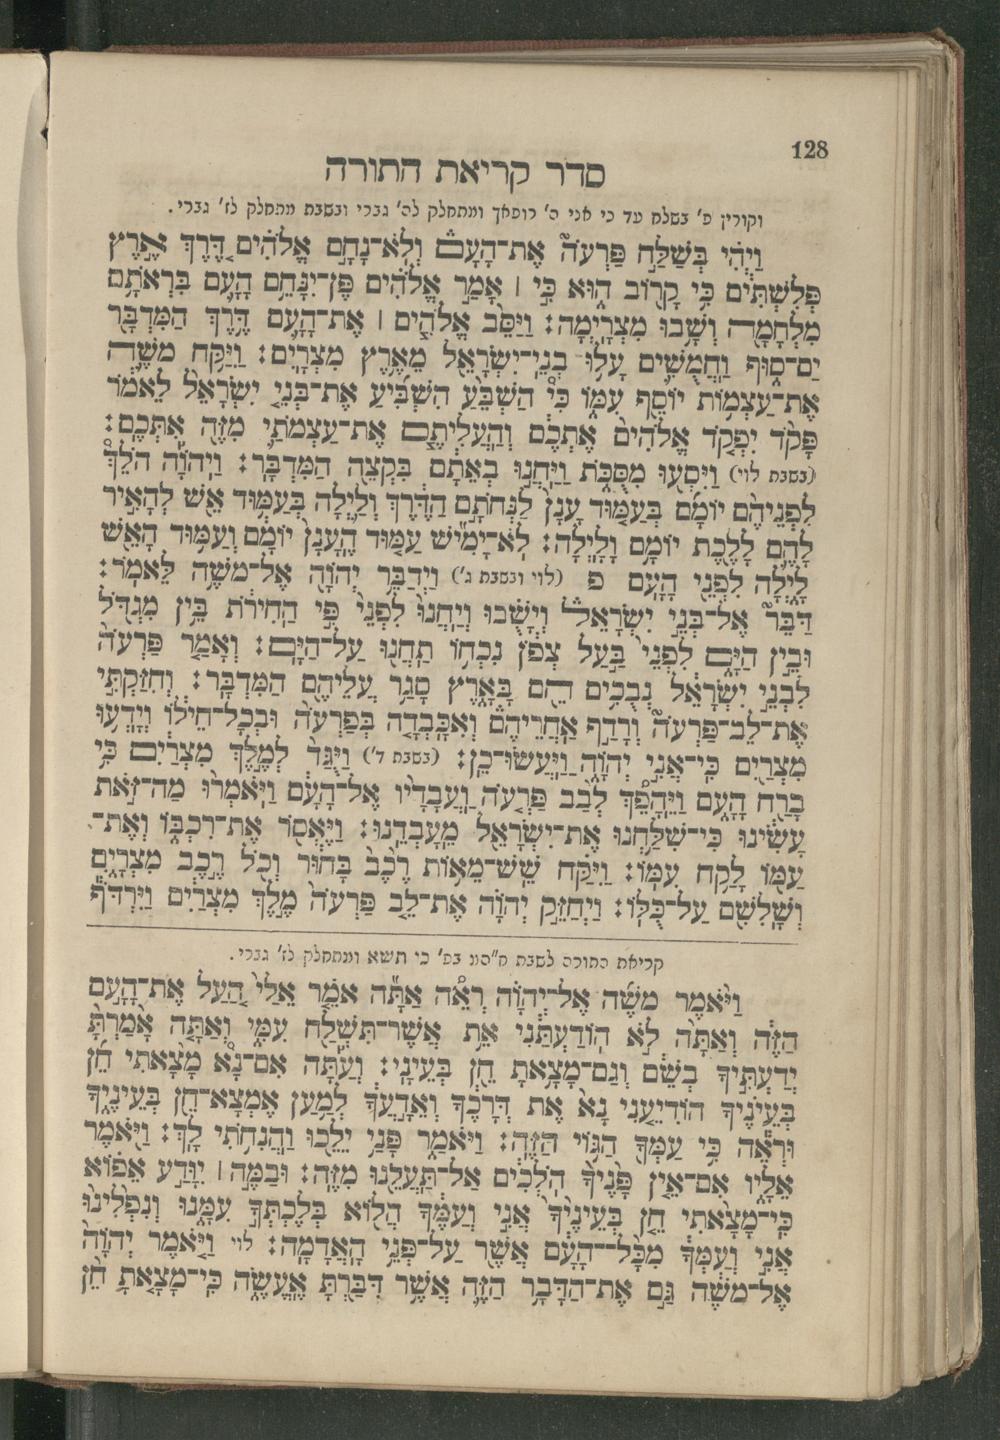 128
סדר קריאת התורה
וקורין פ' בשלח עד כי אני ה' רופאך ומתחלק לה' גברי ובשבת מתחלק לז' גברי.
וַיְהִ֗י בְּשַׁלַּ֣ח פַּרְעֹה֮ אֶת־הָעָם֒ וְלֹא־נָחָ֣ם אֱלֹהִ֗ים דֶּ֚רֶךְ אֶ֣רֶץ
פְּלִשְׁתִּ֔ים כִּ֥י קָר֖וֹב ה֑וּא כִּ֣י ׀ אָמַ֣ר אֱלֹהִ֗ים פֶּן־יִנָּחֵ֥ם הָעָ֛ם בִּרְאֹתָ֥ם
מִלְחָמָ֖ה וְשָׁ֥בוּ מִצְרָֽיְמָה׃ וַיַּסֵּ֨ב אֱלֹהִ֧ים ׀ אֶת־הָעָ֛ם דֶּ֥רֶךְ הַמִּדְבָּ֖ר
יַם־ס֑וּף וַחֲמֻשִׁ֛ים עָל֥וּ בְנֵֽי־יִשְׂרָאֵ֖ל מֵאֶ֥רֶץ מִצְרָֽיִם׃ וַיִּקַּ֥ח משֶׁ֛ה
אֶת־עַצְמ֥וֹת יוֹסֵ֖ף עִמּ֑וֹ כִּי֩ הַשְׁבֵּ֨עַ הִשְׁבִּ֜יעַ אֶת־בְּנֵ֤י יִשְׂרָאֵל֙ לֵאמֹ֔ר
פָּקֹ֨ד יִפְקֹ֤ד אֱלֹהִים֙ אֶתְכֶ֔ם וְהַעֲלִיתֶ֧ם אֶת־עַצְמֹתַ֛י מִזֶּ֖ה אִתְּכֶֽם׃
(בשבת לוי) וַיִּסְע֖וּ מִסֻּכֹּ֑ת וַיַּחֲנ֣וּ בְאֵתָ֔ם בִּקְצֵ֖ה הַמִּדְבָּֽר׃ וַֽיהוָ֡ה הֹלֵךְ֩
לִפְנֵיהֶ֨ם יוֹמָ֜ם בְּעַמּ֤וּד עָנָן֙ לַנְחֹתָ֣ם הַדֶּ֔רֶךְ וְלַ֛יְלָה בְּעַמּ֥וּד אֵ֖שׁ לְהָאִ֣יר
לָהֶ֑ם לָלֶ֖כֶת יוֹמָ֥ם וָלָֽיְלָה׃ לֹֽא־יָמִ֞ישׁ עַמּ֤וּד הֶֽעָנָן֙ יוֹמָ֔ם וְעַמּ֥וּד הָאֵ֖שׁ
לָ֑יְלָה לִפְנֵ֖י הָעָֽם פ (לוי ובשבת ג') וַיְדַבֵּ֥ר יְהוָ֖ה אֶל־משֶׁ֥ה לֵּאמֹֽר׃
דַּבֵּר֮ אֶל־בְּנֵ֣י יִשְׂרָאֵל֒ וְיָשֻׁ֗בוּ וְיַחֲנוּ֙ לִפְנֵי֙ פִּ֣י הַחִירֹ֔ת בֵּ֥ין מִגְדֹּ֖ל
וּבֵ֣ין הַיָּ֑ם לִפְנֵי֙ בַּ֣עַל צְפֹ֔ן נִכְח֥וֹ תַחֲנ֖וּ עַל־הַיָּֽם׃ וְאָמַ֤ר פַּרְעֹה֙
לִבְנֵ֣י יִשְׂרָאֵ֔ל נְבֻכִ֥ים הֵ֖ם בָּאָ֑רֶץ סָגַ֥ר עֲלֵיהֶ֖ם הַמִּדְבָּֽר׃ וְחִזַּקְתִּ֣י
אֶת־לֵב־פַּרְעֹה֮ וְרָדַ֣ף אַחֲרֵיהֶם֒ וְאִכָּבְדָ֤ה בְּפַרְעֹה֙ וּבְכָל־חֵיל֔וֹ וְיָדְע֥וּ
מִצְרַ֖יִם כִּֽי־אֲנִ֣י יְהוָ֑ה וַיַּֽעֲשׂוּ־כֵֽן׃ (בשבת ד') וַיֻּגַּד֙ לְמֶ֣לֶךְ מִצְרַ֔יִם כִּ֥י
בָרַ֖ח הָעָ֑ם וַ֠יֵּהָפֵךְ לְבַ֨ב פַּרְעֹ֤ה וַעֲבָדָיו֙ אֶל־הָעָ֔ם וַיֹּֽאמְרוּ֙ מַה־זֹּ֣את
עָשִׂ֔ינוּ כִּֽי־שִׁלַּ֥חְנוּ אֶת־יִשְׂרָאֵ֖ל מֵעָבְדֵֽנוּ׃ וַיֶּאְסֹ֖ר אֶת־רִכְבּ֑וֹ וְאֶת־
עַמּ֖וֹ לָקַ֥ח עִמּֽוֹ׃ וַיִּקַּ֗ח שֵׁשׁ־מֵא֥וֹת רֶ֙כֶב֙ בָּח֔וּר וְכֹ֖ל רֶ֣כֶב מִצְרָ֑יִם
וְשָׁלִשִׁ֖ם עַל־כֻּלּֽוֹ׃ וַיְחַזֵּ֣ק יְהוָ֗ה אֶת־לֵ֤ב פַּרְעֹה֙ מֶ֣לֶךְ מִצְרַ֔יִם וַיִּרְדֹּ֕ף
קריאת התורה לשבת ח"המ בפ' כי תשא ומתחלק לז' גברי.
וַיֹּ֨אמֶר משֶׁ֜ה אֶל־יְהוָ֗ה רְ֠אֵה אַתָּ֞ה אֹמֵ֤ר אֵלַי֙ הַ֚עַל אֶת־הָעָ֣ם
הַזֶּ֔ה וְאַתָּה֙ לֹ֣א הֽוֹדַעְתַּ֔נִי אֵ֥ת אֲשֶׁר־תִּשְׁלַ֖ח עִמִּ֑י וְאַתָּ֤ה אָמַ֙רְתָּ֙
יְדַעְתִּ֣יךָֽ בְשֵׁ֔ם וְגַם־מָצָ֥אתָ חֵ֖ן בְּעֵינָֽי׃ וְעַתָּ֡ה אִם־נָא֩ מָצָ֨אתִי חֵ֜ן
בְּעֵינֶ֗יךָ הוֹדִעֵ֤נִי נָא֙ אֶת דְּרָכֶ֔ךָ וְאֵדָ֣עֲךָ֔ לְמַ֥עַן אֶמְצָא־חֵ֖ן בְּעֵינֶ֑יךָ
וּרְאֵ֕ה כִּ֥י עַמְּךָ֖ הַגּ֥וֹי הַזֶּֽה׃ וַיֹּאמַ֑ר פָּנַ֥י יֵלֵ֖כוּ וַהֲנִחֹ֥תִי לָֽךְ׃ וַיֹּ֖אמֶר
אֵלָ֑יו אִם־אֵ֤ין פָּנֶ֙יךָ֙ הֹלְכִ֔ים אַֽל־תַּעֲלֵ֖נוּ מִזֶּֽה׃ וּבַמֶּ֣ה ׀ יִוָּדַ֣ע אֵפ֗וֹא
כִּֽי־מָצָ֨אתִי חֵ֤ן בְּעֵינֶ֙יךָ֙ אֲנִ֣י וְעַמֶּ֔ךָ הֲל֖וֹא בְּלֶכְתְּךָ֣ עִמָּ֑נוּ וְנִפְלִ֙ינוּ֙
אֲנִ֣י וְעַמְּךָ֔ מִכָּ֨ל־הָעָ֔ם אֲשֶׁ֖ר עַל־פְּנֵ֥י הָאֲדָמָֽה׃ לוי וַיֹּ֤אמֶר יְהוָה֙
אֶל־משֶׁ֔ה גַּ֣ם אֶת־הַדָּבָ֥ר הַזֶּ֛ה אֲשֶׁ֥ר דִּבַּ֖רְתָּ אֶֽעֱשֶׂ֑ה כִּֽי־מָצָ֤אתָ חֵן֙